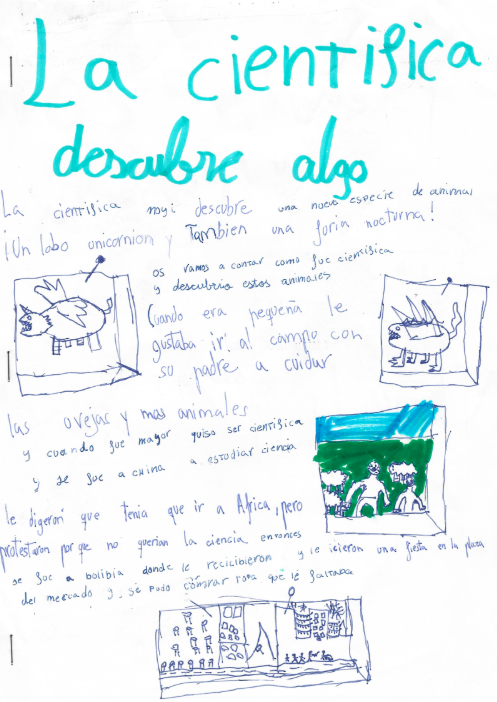 La cientifica
descubre algo
La cientifica moyi descubre una nueva especie de animal
¡Un lobo unicornion y Tambien una foria nocturna!
os vamos a contar como fue cientifica
y descubrio estos animales
Cuando era pequeña le
gustaba ir al campo con
su padre a cuidar
las ovejas y mas animales
y cuando fue mayor quiso ser cientifica
y se fue a china a estudiar ciencia
le digeron que tenia que ir a Africa, pero
protestaron por que no querian la ciencia, entonces
se fue a bolibia donde le recicibieron y le icieron una fiesta en la plaza
del mercado y se pudo comprar ropa que le faltaba